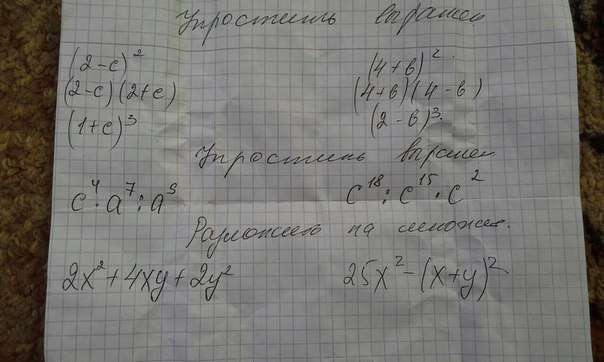 Упростить выражен
(2-c)² (4+в)²
(2-c)(2+c) (4+в)(4-в)
(1+c)³ (2-в)³
Упростить выражен
c⁴·a⁷:a⁵ c¹⁸:c¹⁵·c²
Разложить на множит.
2x²+4xy+2y² 25x²-(x+y)²